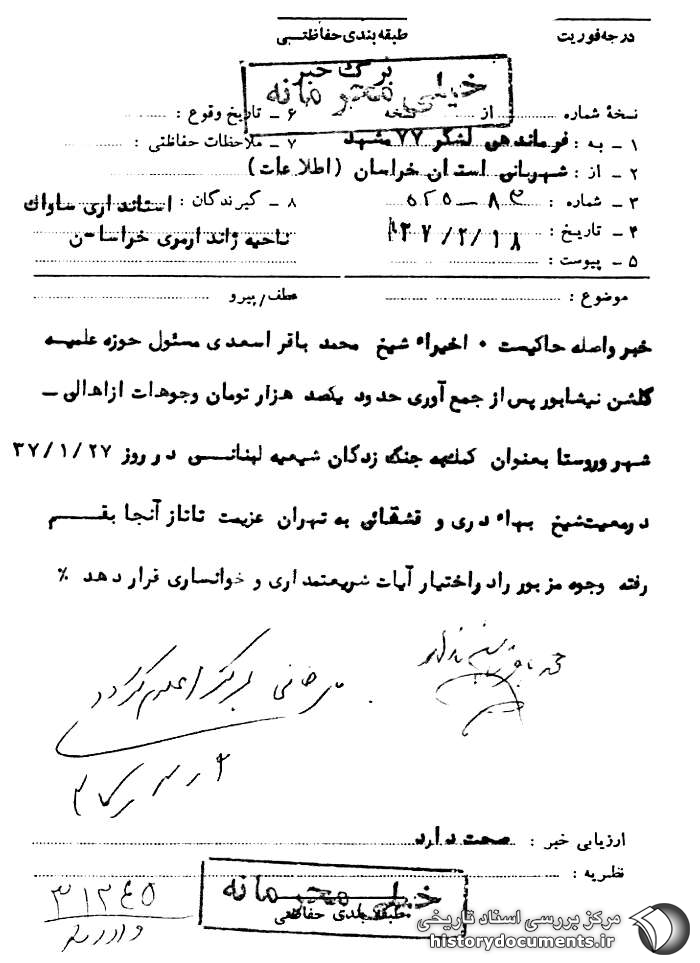 درجه فوریت
طبقه بندی حفاظتی
برگ خبر
خیلی محرمانه
نسخهٔ شماره .......... از .......... نسخه
۱ ـ به : فرماندهی لشگر ۷۷ مشهد
۲ ـ از : شهربانی استان خراسان (اطلاعات)
۳ ـ شماره : ۸۳ – ۵۲۵
۴ ـ تاریخ : ۳۷/۲/۱۸
۵ ـ پیوست :
۶ ـ تاریخ وقوع :
۷ ـ ملاحظات حفاظتی :
۸ ـ گیرندگان : استانداری ساواک
ناحیه ژاندارمری خراسان
موضوع :
عطف/پیرو
خبر واصله حاکیست ۰ اخیراً شیخ محمد باقر اسعدی مسئول حوزه علمیه
گلشن نیشابور پس از جمع آوری حدود یکصد هزار تومان وجوهات از اهالی ـ
شهر و روستا بعنوان کمک به جنگ زدگان شیعیه لبنانی در روز ۳۷/۱/۲۷
در معیت شیخ بهاءدری و قشقائی به تهران عزیمت تا از آنجا بقم
رفته وجوه مزبور را در اختیار آیات شریعتمداری و خوانساری قرار دهد ٪
بمرکز اعلام گردد
ارزیابی خبر : صحت دارد
نظریه :
خیلی محرمانه
طبقه بندی حفاظتی
۳۱۲۴۵
مرکز بررسی اسناد تاریخی
historydocuments.ir